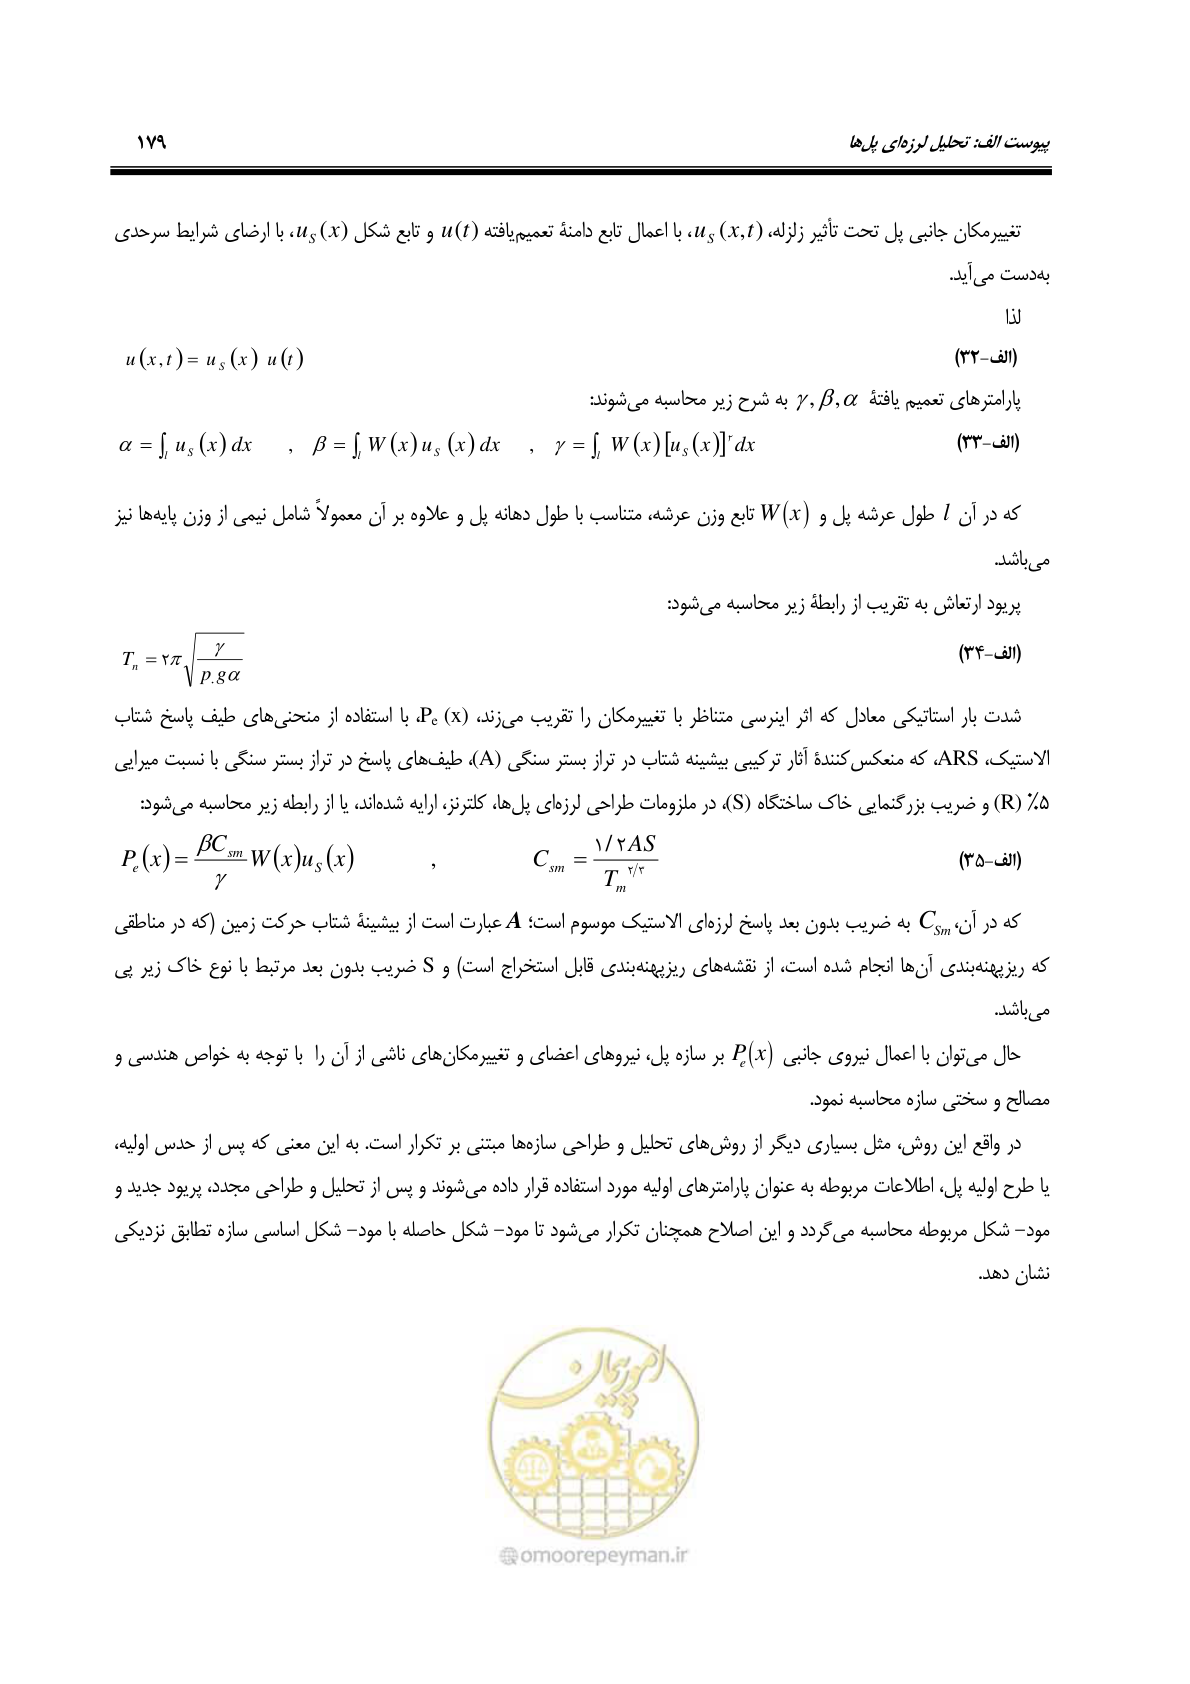 پیوست الف: تحلیل لرزه‌ای پل‌ها ۱۷۹
تغییرمکان جانبی پل تحت تأثیر زلزله، u_S (x,t)، با اعمال تابع دامنهٔ تعمیم‌یافته u(t) و تابع شکل u_S (x)، با ارضای شرایط سرحدی
به‌دست می‌آید.
لذا
(الف-۳۲) u(x,t) = u_S (x) u(t)
پارامترهای تعمیم یافتهٔ γ, β, α به شرح زیر محاسبه می‌شوند:
(الف-۳۳) α = ∫_l u_S (x) dx , β = ∫_l W(x) u_S (x) dx , γ = ∫_l W(x) [u_S (x)]^۲ dx
که در آن l طول عرشه پل و W(x) تابع وزن عرشه، متناسب با طول دهانه پل و علاوه بر آن معمولاً شامل نیمی از وزن پایه‌ها نیز
می‌باشد.
پریود ارتعاش به تقریب از رابطهٔ زیر محاسبه می‌شود:
(الف-۳۴) T_n = ۲π √(γ / p.gα)
شدت بار استاتیکی معادل که اثر اینرسی متناظر با تغییرمکان را تقریب می‌زند، P_e (x)، با استفاده از منحنی‌های طیف پاسخ شتاب
الاستیک، ARS، که منعکس‌کنندهٔ آثار ترکیبی بیشینه شتاب در تراز بستر سنگی (A)، طیف‌های پاسخ در تراز بستر سنگی با نسبت میرایی
۵٪ (R) و ضریب بزرگنمایی خاک ساختگاه (S)، در ملزومات طراحی لرزه‌ای پل‌ها، کلترنز، ارایه شده‌اند، یا از رابطه زیر محاسبه می‌شود:
(الف-۳۵) P_e (x) = (βC_sm / γ) W(x) u_S (x) , C_sm = ۱/۲AS / T_m^۲/۳
که در آن، C_Sm به ضریب بدون بعد پاسخ لرزه‌ای الاستیک موسوم است؛ A عبارت است از بیشینهٔ شتاب حرکت زمین (که در مناطقی
که ریزپهنه‌بندی آن‌ها انجام شده است، از نقشه‌های ریزپهنه‌بندی قابل استخراج است) و S ضریب بدون بعد مرتبط با نوع خاک زیر پی
می‌باشد.
حال می‌توان با اعمال نیروی جانبی P_e(x) بر سازه پل، نیروهای اعضای و تغییرمکان‌های ناشی از آن را با توجه به خواص هندسی و
مصالح و سختی سازه محاسبه نمود.
در واقع این روش، مثل بسیاری دیگر از روش‌های تحلیل و طراحی سازه‌ها مبتنی بر تکرار است. به این معنی که پس از حدس اولیه،
یا طرح اولیه پل، اطلاعات مربوطه به عنوان پارامترهای اولیه مورد استفاده قرار داده می‌شوند و پس از تحلیل و طراحی مجدد، پریود جدید و
مود- شکل مربوطه محاسبه می‌گردد و این اصلاح همچنان تکرار می‌شود تا مود- شکل حاصله با مود- شکل اساسی سازه تطابق نزدیکی
نشان دهد.
امور پیمان
@omoorepeyman.ir